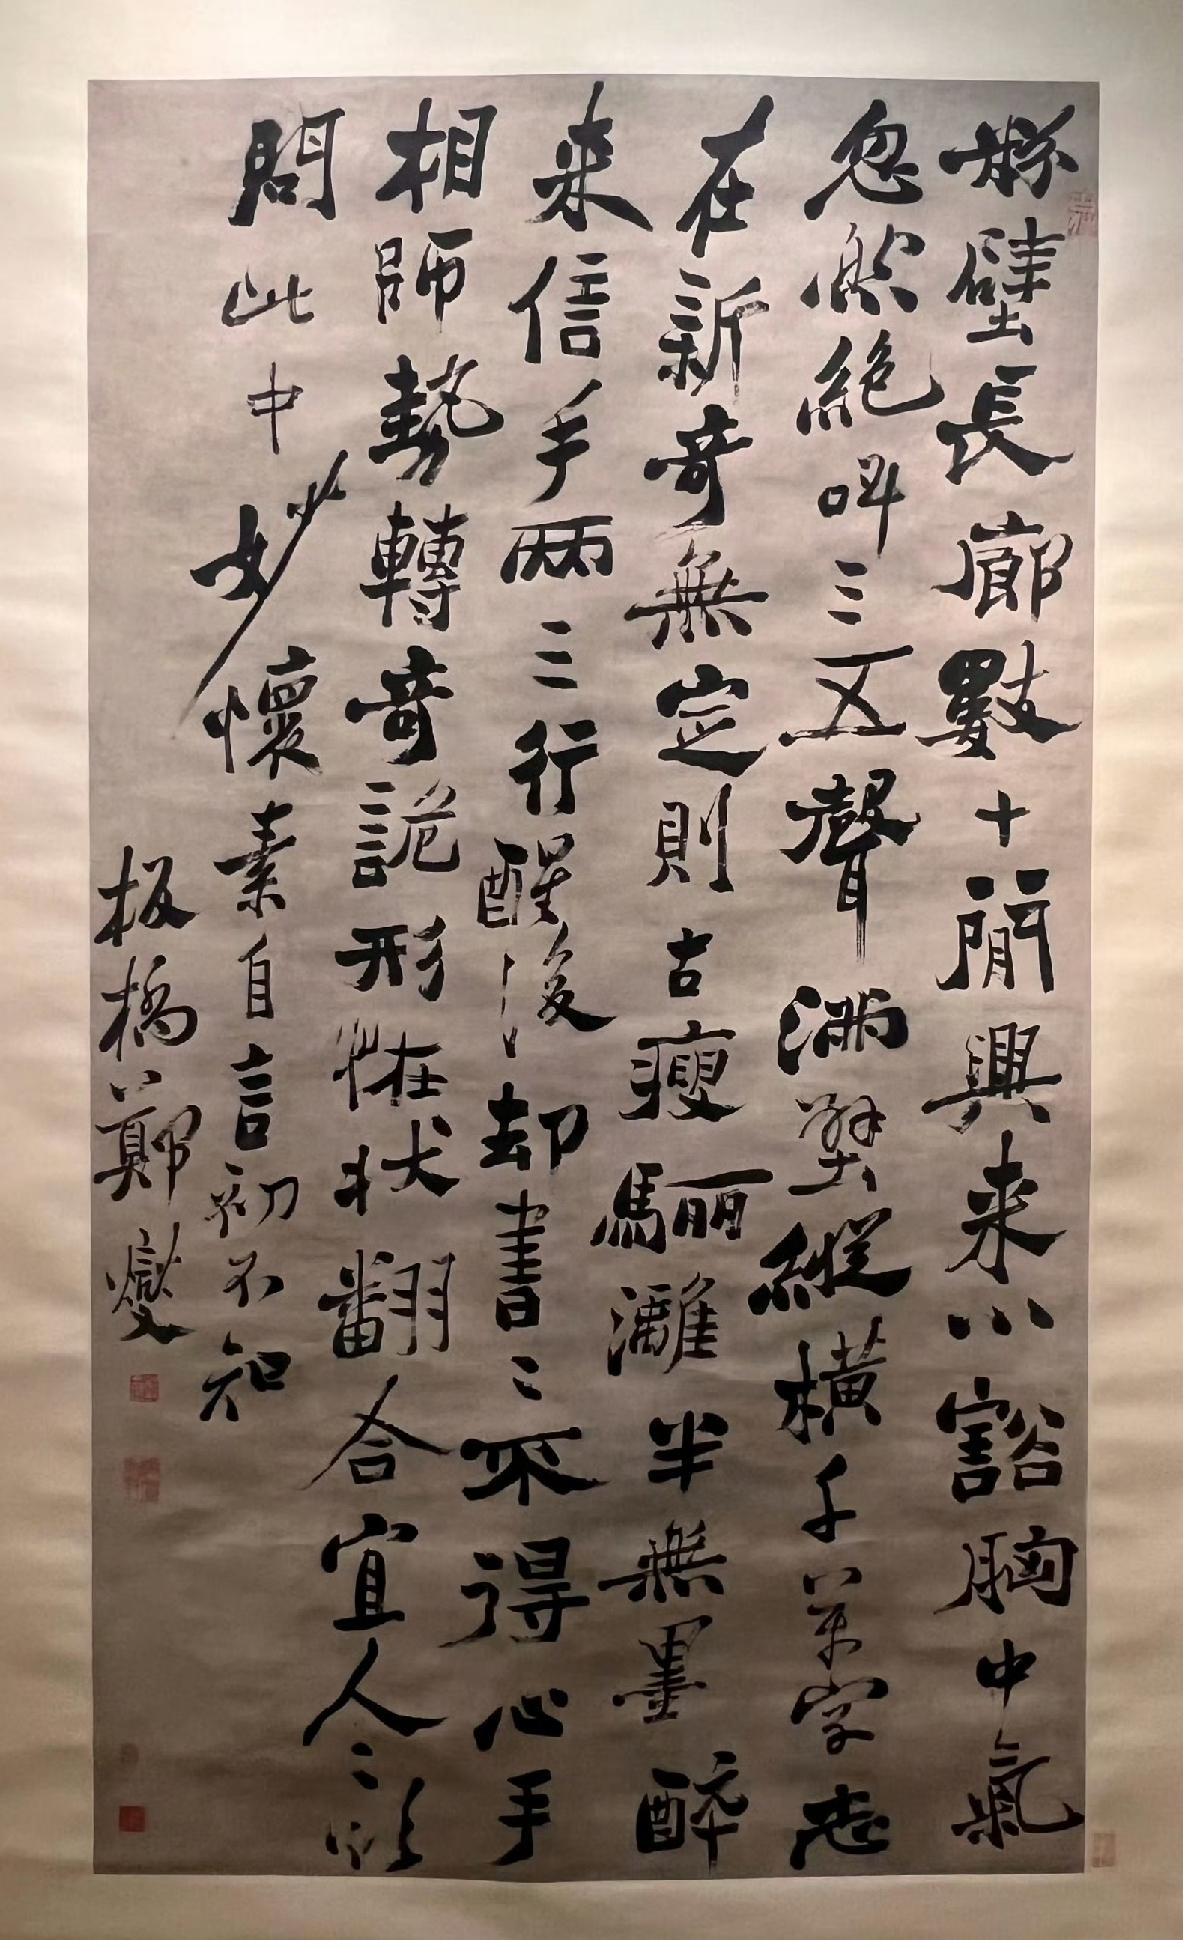 粉壁長廊數十間興来小豁胸中氣
忽然絕叫三五聲滿壁縱橫千萬字志
在新奇無定則古瘦驪灕半無墨醉
来信手兩三行醒後却書々不得心手
相師勢轉奇詭形怪狀翻合宜人々欲
問此中妙懷素自言初不知
板橋鄭燮